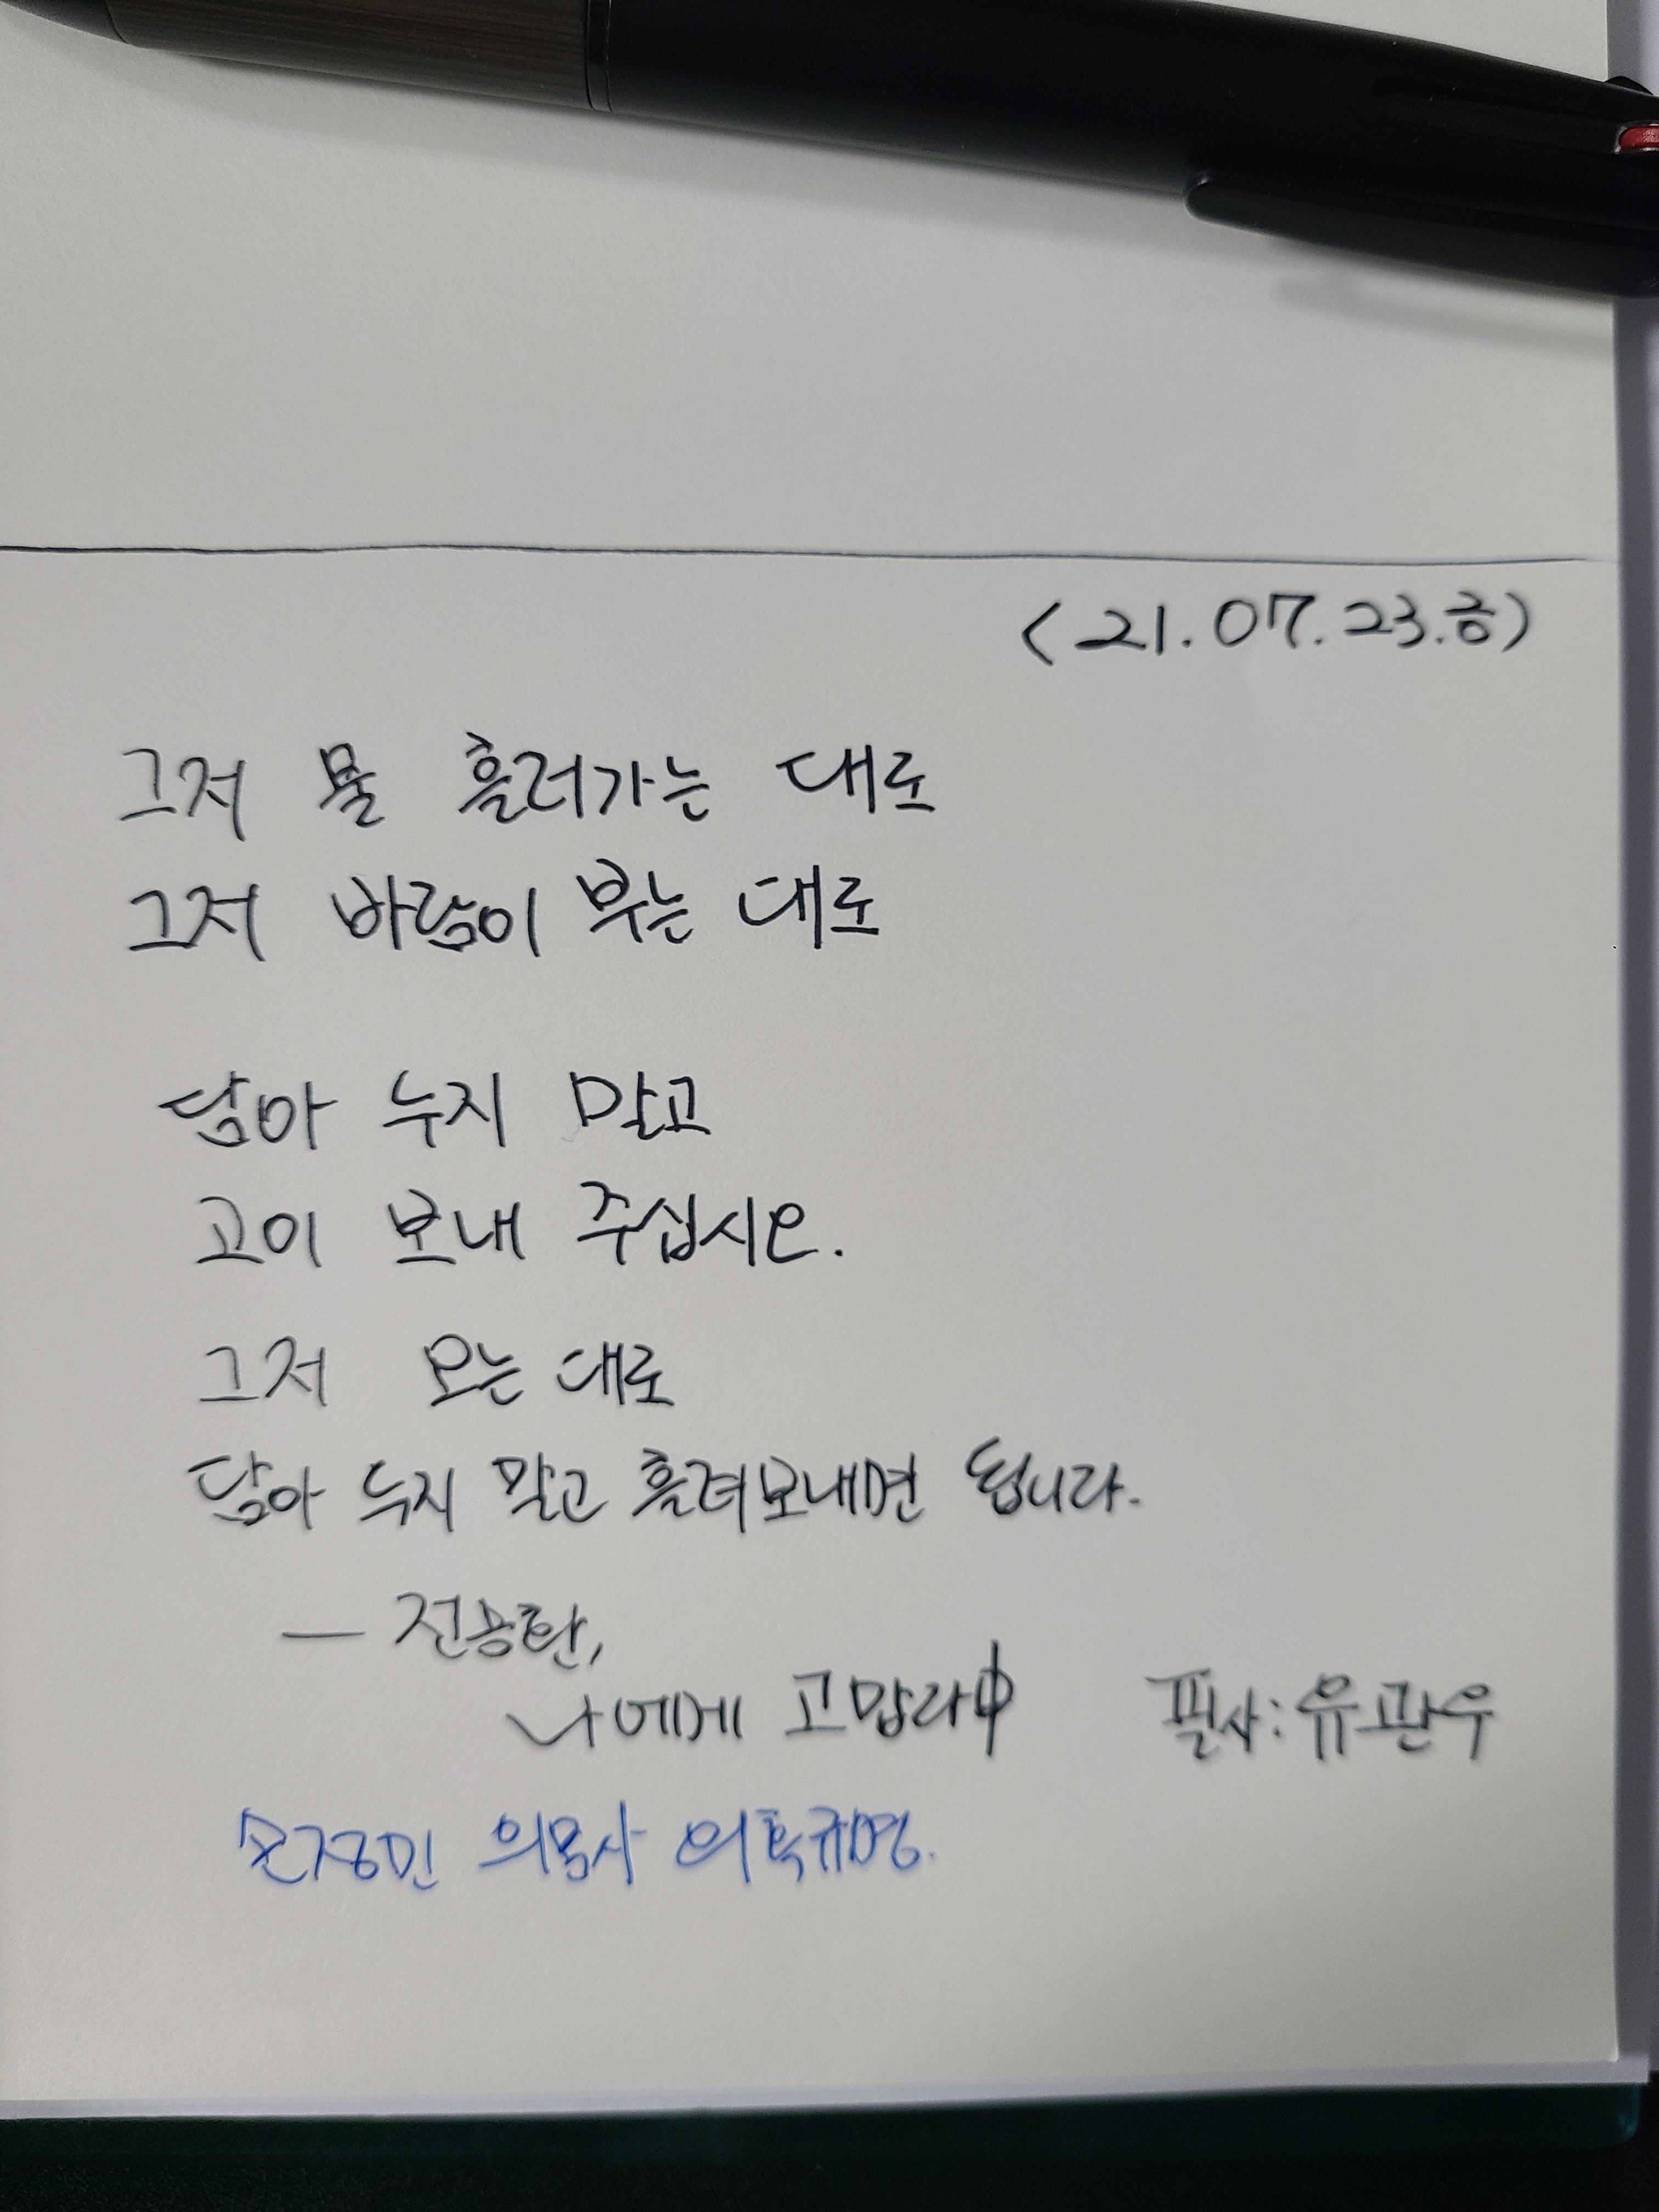 (21.07.23.금)
그저 물 흘러가는 대로
그저 바람이 부는 대로
담아 두지 말고
고이 보내 주십시오.
그저 오는 대로
담아 두지 말고 흘려보내면 됩니다.
— 전승환,
나에게 고맙다中
필사: 유관우
손정민 의문사 의혹규명.